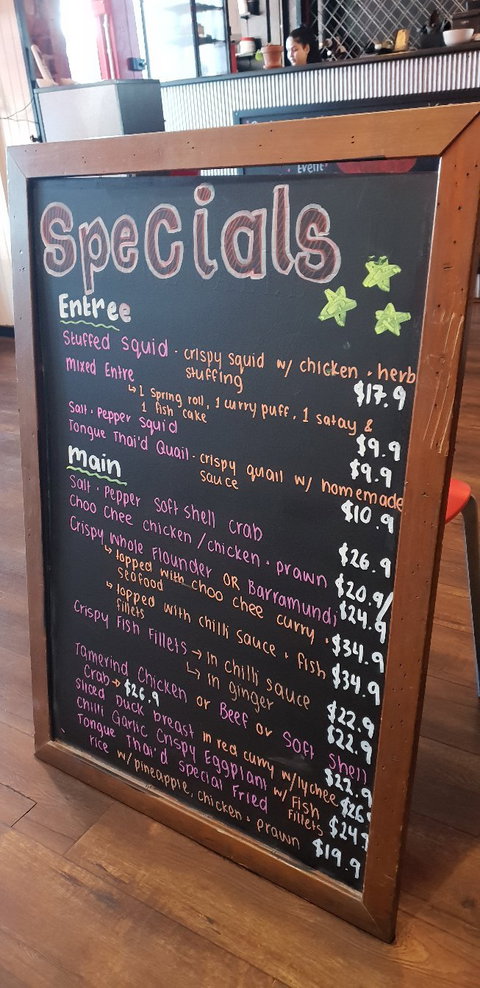 Event
Specials
Entree
Stuffed Squid - crispy squid w/ chicken + herb
stuffing $17.9
Mixed Entre
↳ 1 spring roll, 1 curry puff, 1 satay &
1 fish cake $9.9
Salt + Pepper Squid $9.9
Tongue Thai'd Quail - crispy quail w/ homemade
sauce $10.9
Main
Salt + Pepper Soft shell crab $26.9
Choo Chee chicken / chicken + prawn $20.9/
$24.9
Crispy Whole Flounder OR Barramundi
↳ topped with choo chee curry +
seafood $34.9
↳ topped with chilli sauce + fish
fillets $34.9
Crispy Fish Fillets → in chilli sauce $22.9
↳ in ginger $22.9
Tamerind Chicken or Beef or Soft Shell
Crab → $26.9 $22.9
Sliced Duck breast in red curry w/ lychee $26
Chilli Garlic Crispy Eggplant w/ Fish
Fillets $24.9
Tongue Thai'd Special Fried
rice w/ pineapple, chicken + prawn $19.9